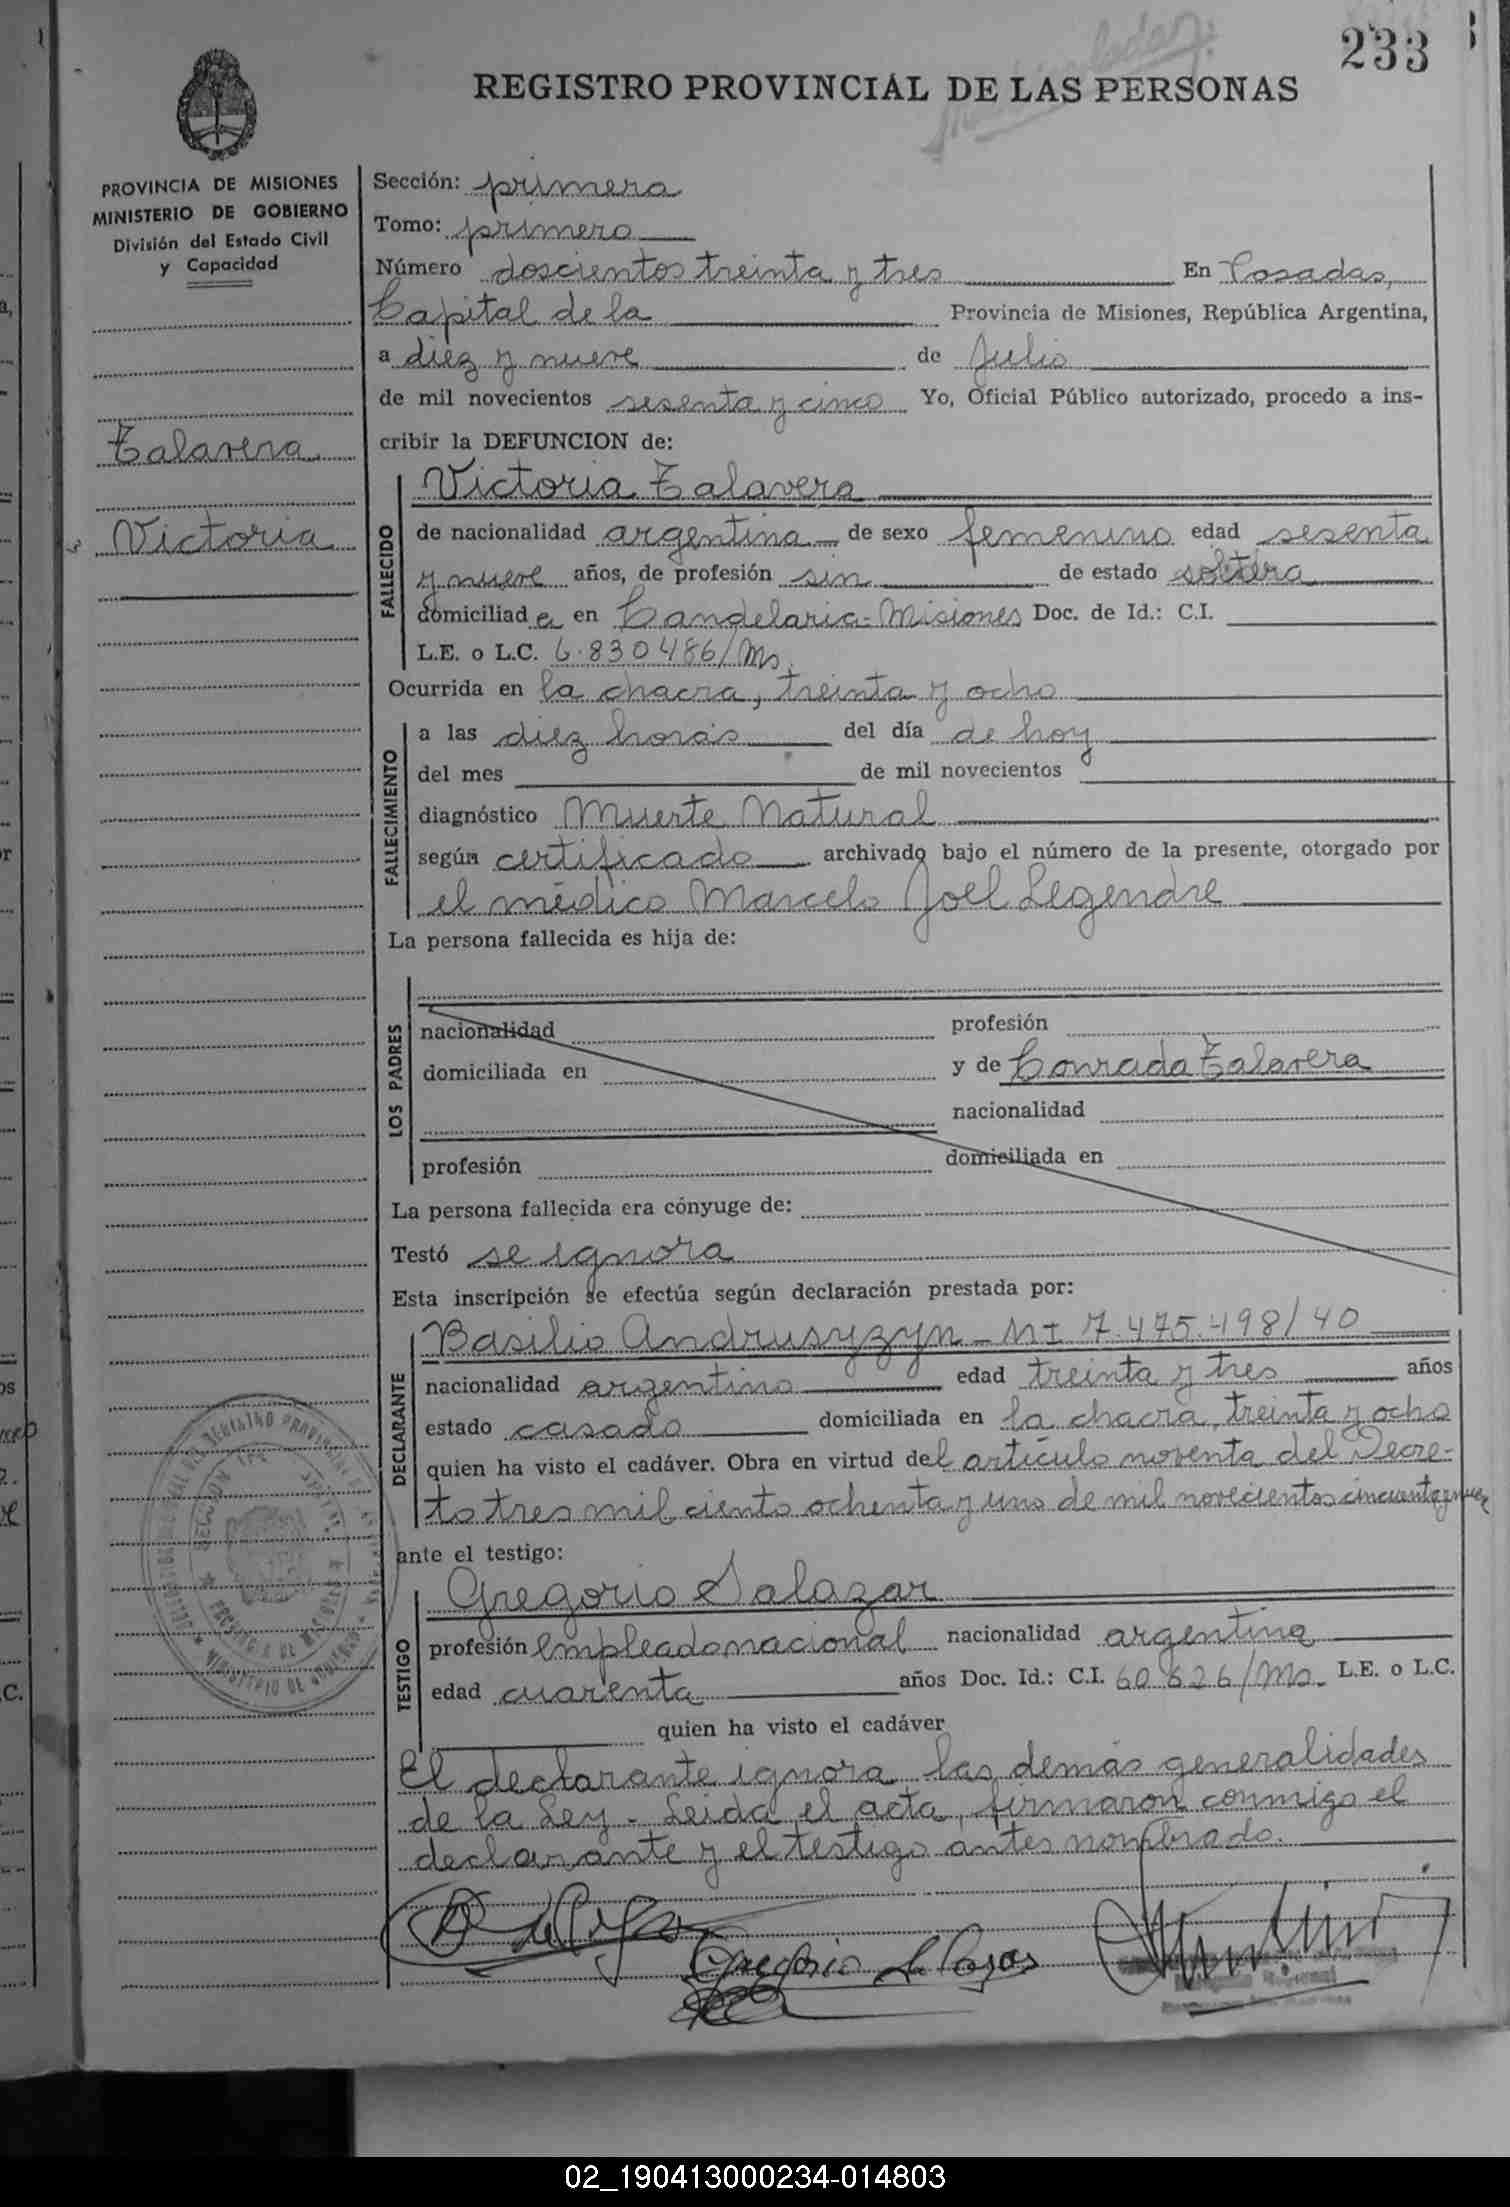 233
REGISTRO PROVINCIAL DE LAS PERSONAS
PROVINCIA DE MISIONES
MINISTERIO DE GOBIERNO
División del Estado Civil
y Capacidad
Talavera
Victoria
Sección: primera
Tomo: primero
Número doscientos treinta y tres En Posadas,
Capital de la Provincia de Misiones, República Argentina,
a diez y nueve de Julio
de mil novecientos sesenta y cinco Yo, Oficial Público autorizado, procedo a ins-
cribir la DEFUNCION de:
FALLECIDO
Victoria Talavera
de nacionalidad argentina de sexo femenino edad sesenta
y nueve años, de profesión sin de estado soltera
domiciliad a en Candelaria-Misiones Doc. de Id.: C.I.
L.E. o L.C. 6.830486/Ms.
Ocurrida en la chacra, treinta y ocho
FALLECIMIENTO
a las diez horas del día de hoy
del mes de mil novecientos
diagnóstico Muerte Natural
según certificado archivado bajo el número de la presente, otorgado por
el médico Marcelo Joel Legendre
La persona fallecida es hija de:
LOS PADRES
nacionalidad profesión
domiciliada en y de Conrada Talavera
nacionalidad
profesión domiciliada en
La persona fallecida era cónyuge de:
Testó se ignora
Esta inscripción se efectúa según declaración prestada por:
DECLARANTE
Basilio Andrusyzyn - MI 7.475.498/40
nacionalidad argentino edad treinta y tres años
estado casado domiciliada en la chacra, treinta y ocho
quien ha visto el cadáver. Obra en virtud del artículo noventa del Decre-
to tres mil ciento ochenta y uno de mil novecientos cincuenta y nueve
ante el testigo:
TESTIGO
Gregorio Salazar
profesión empleado nacional nacionalidad argentina
edad cuarenta años Doc. Id.: C.I. 60.626/Ms. L.E. o L.C.
quien ha visto el cadáver
El declarante ignora las demás generalidades
de la Ley - Leida el acta, firmaron conmigo el
declarante y el testigo antes nombrado.
Gregorio Salazar
02_190413000234-014803